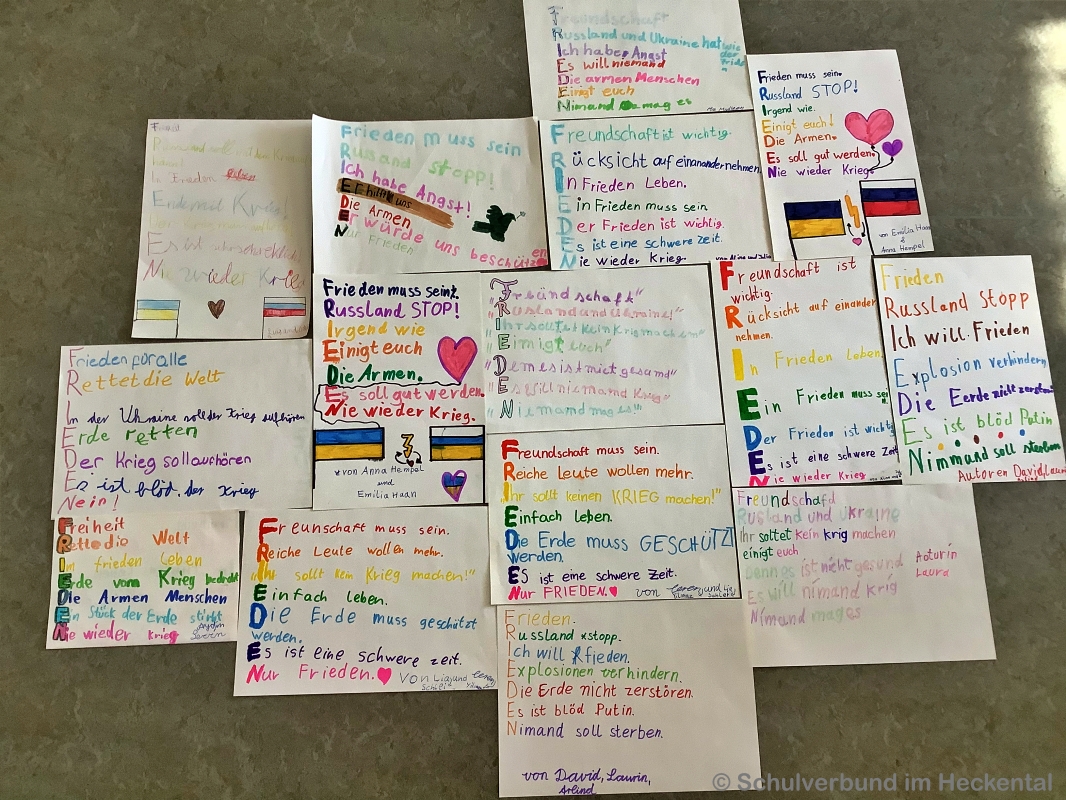 Freundschaft
Russland und Ukraine hat wie der Friede
Ich habe Angst
Es will niemand
Die armen Menschen
Einigt euch
Nimand mag es
Frieden muss sein.
Russland STOP!
Irgend wie.
Einigt euch!
Die Armen.
Es soll gut werden.
Nie wieder Krieg.
von Emilia Haan
&
Anna Hempel
In Frieden
Es ist
Nie wieder Krieg
Frieden muss sein
Russand stopp!
Ich habe Angst!
Er hilft uns
Die Armen
Er würde uns beschützen
Nur Frieden
Freundschaft ist wichtig.
Rücksicht auf einanander nehmen.
In Frieden Leben.
Ein Frieden muss sein.
Der Frieden ist wichtig.
Es ist eine schwere Zeit.
Nie wieder Krieg.
Frieden muss sein.
Russland STOP!
Irgend wie
Einigt euch
Die Armen.
Es soll gut werden.
Nie wieder Krieg.
von Anna Hempel
und
Emilia Haan
"Freündschaft"
"Rusland und Ukraine!
"Ihr sollt es kein Krig machen"
"Einigt euch"
"Den es ist niet gesund"
"Es will niemand Krieg"
"Niemand mag es"
Freundschaft ist
wichtig.
Rücksicht auf einander
nehmen.
In Frieden Leben.
Ein Frieden muss sein.
Der Frieden ist wichtig
Es ist eine schwere Zeit
Nie wieder Krieg
Frieden
Russland Stopp
Ich will Frieden
Explosion verhindern
Die Eerde nicht zerstören
Es ist blöd Putin
Nimmand soll sterben
Autoren David, Laurin
Frieden für alle
Rettet die Welt
In der Ukraine soll der Krieg aufhören
Erde retten
Der Krieg soll aufhören
Es ist blöd. der Krieg
Nein!
Freundschaft muss sein.
Reiche Leute wollen mehr.
"Ihr sollt keinen KRIEG machen!"
Einfach leben.
Die Erde muss GESCHÜTZT
werden.
ES ist eine schwere Zeit.
Nur FRIEDEN.
von
und
Freundschafd
Rusland und Ukraine
Ihr soltet kein krig machen
einigt euch
Denn es ist nicht gesund
Es will nimand krig
Nimand mag es
Aoturin
Laura
Freiheit
Rette die Welt
Im frieden leben
Erde vom Krieg bedroht
Die Armen Menschen
Ein Stück der Erde stirbt
Nie wieder krieg
Freunschaft muss sein.
Reiche Leute wollen mehr.
"Ihr sollt kein Krieg machen!"
Einfach leben.
Die Erde muss geschützt
werden.
Es ist eine schwere zeit.
Nur Frieden.
von Lia und
Frieden.
Russland stopp.
Ich will Frieden.
Explosionen verhindern.
Die Erde nicht zerstören.
Es ist blöd Putin.
Nimand soll sterben.
von David, Laurin,
Arlind
© Schulverbund im Heckental